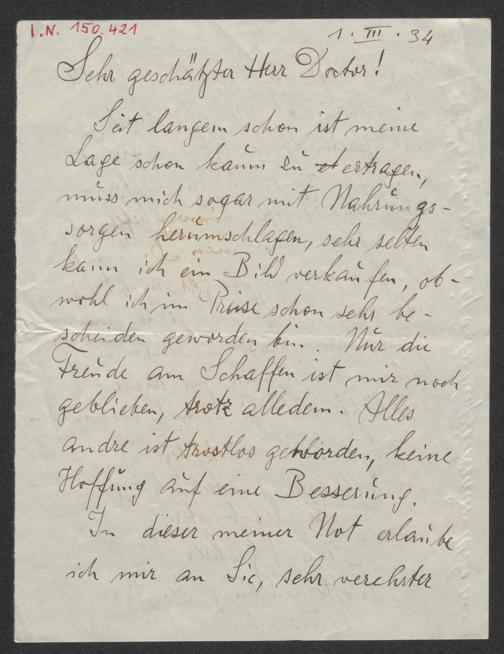 I.N. 150.421
1. III. 34
Sehr geschätzter Herr Doctor!
Seit langem schon ist meine
Lage schon kaum zu ertragen,
muss mich sogar mit Nahrungs-
sorgen herumschlagen, sehr selten
kann ich ein Bild verkaufen, ob-
wohl ich im Preise schon sehr be-
scheiden geworden bin. Nur die
Freude am Schaffen ist mir noch
geblieben, trotz alledem. Alles
andre ist trostlos geworden, keine
Hoffung auf eine Besserung.
In dieser meiner Not erlaube
ich mir an Sie, sehr verehrter